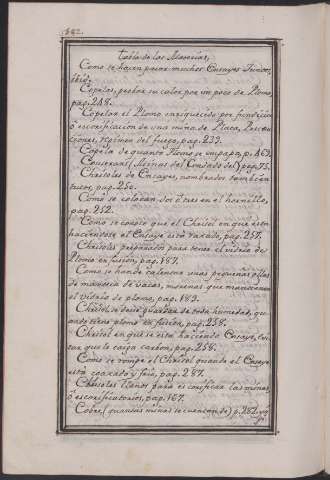 582.
Tabla de las Materias,
Como se hacen pasar muchos Ensayes Juntos,
ibid.
Copelas, probar su calor por un poco de Plomo,
pag. 248.
Copelar el Plomo enriquecido por fundicion
ó escorificacion de una mina de Plata, Precau
ciones, regimen del fuego, pag. 233.
Copela de quanto Plomo se impapa, p. 463.
Cousexans (Minas del Condado de) pag. 75.
Chrisoles de Ensayes, nombrados tambien
tutos, pag. 250.
Como se colocan dos ó tres en el hornillo,
pag. 252.
Como se conoce que el Chrisol en que está
haciendose el Ensaye está raxado, pag. 257.
Chrisoles preparados para tener el vidrio de
Plomo en fusion, pag. 187.
Como se han de calentar unas pequeñas ollas
de manteca de vacas, mientras que mantienen
el vidrio de plomo, pag. 183.
Chrisol, se debe guardar de toda humedad, qu
ando tiene plomo en fusion, pag. 258.
Chrisol en que se está haciendo Ensaye, Evi
tar que le caiga carbon, pag. 258.
Como se rompe el Chrisol quando el Ensaye
está quaxado y frio, pag. 287.
Chrisoles llanos para escorificar las minas,
ó escorificatorios, pag. 167.
Cobre, (quantas minas se cuentan de) p. 282. y sig